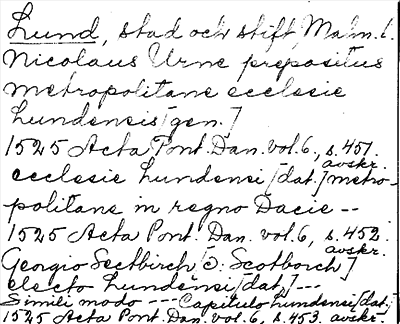 Lund, stad och stift, Malm. l.
Nicolaus Urne prepositus
metropolitane ecclesie
Lundensis [gen.]
1525 Acta Pont. Dan. vol. 6, s. 451.
avskr.
ecclesie Lundensi [dat.] metro-
politane in regno Dacie --
1525 Acta Pont. Dan. vol. 6, s. 452.
avskr.
Georgio Sectbirch [ɔ: Scotborch]
electo Lundensi [dat.] ---
Simili modo --- Capitulo Lundensi [dat.]
1525 Acta Pont. Dan. vol. 6, s. 453. avskr.